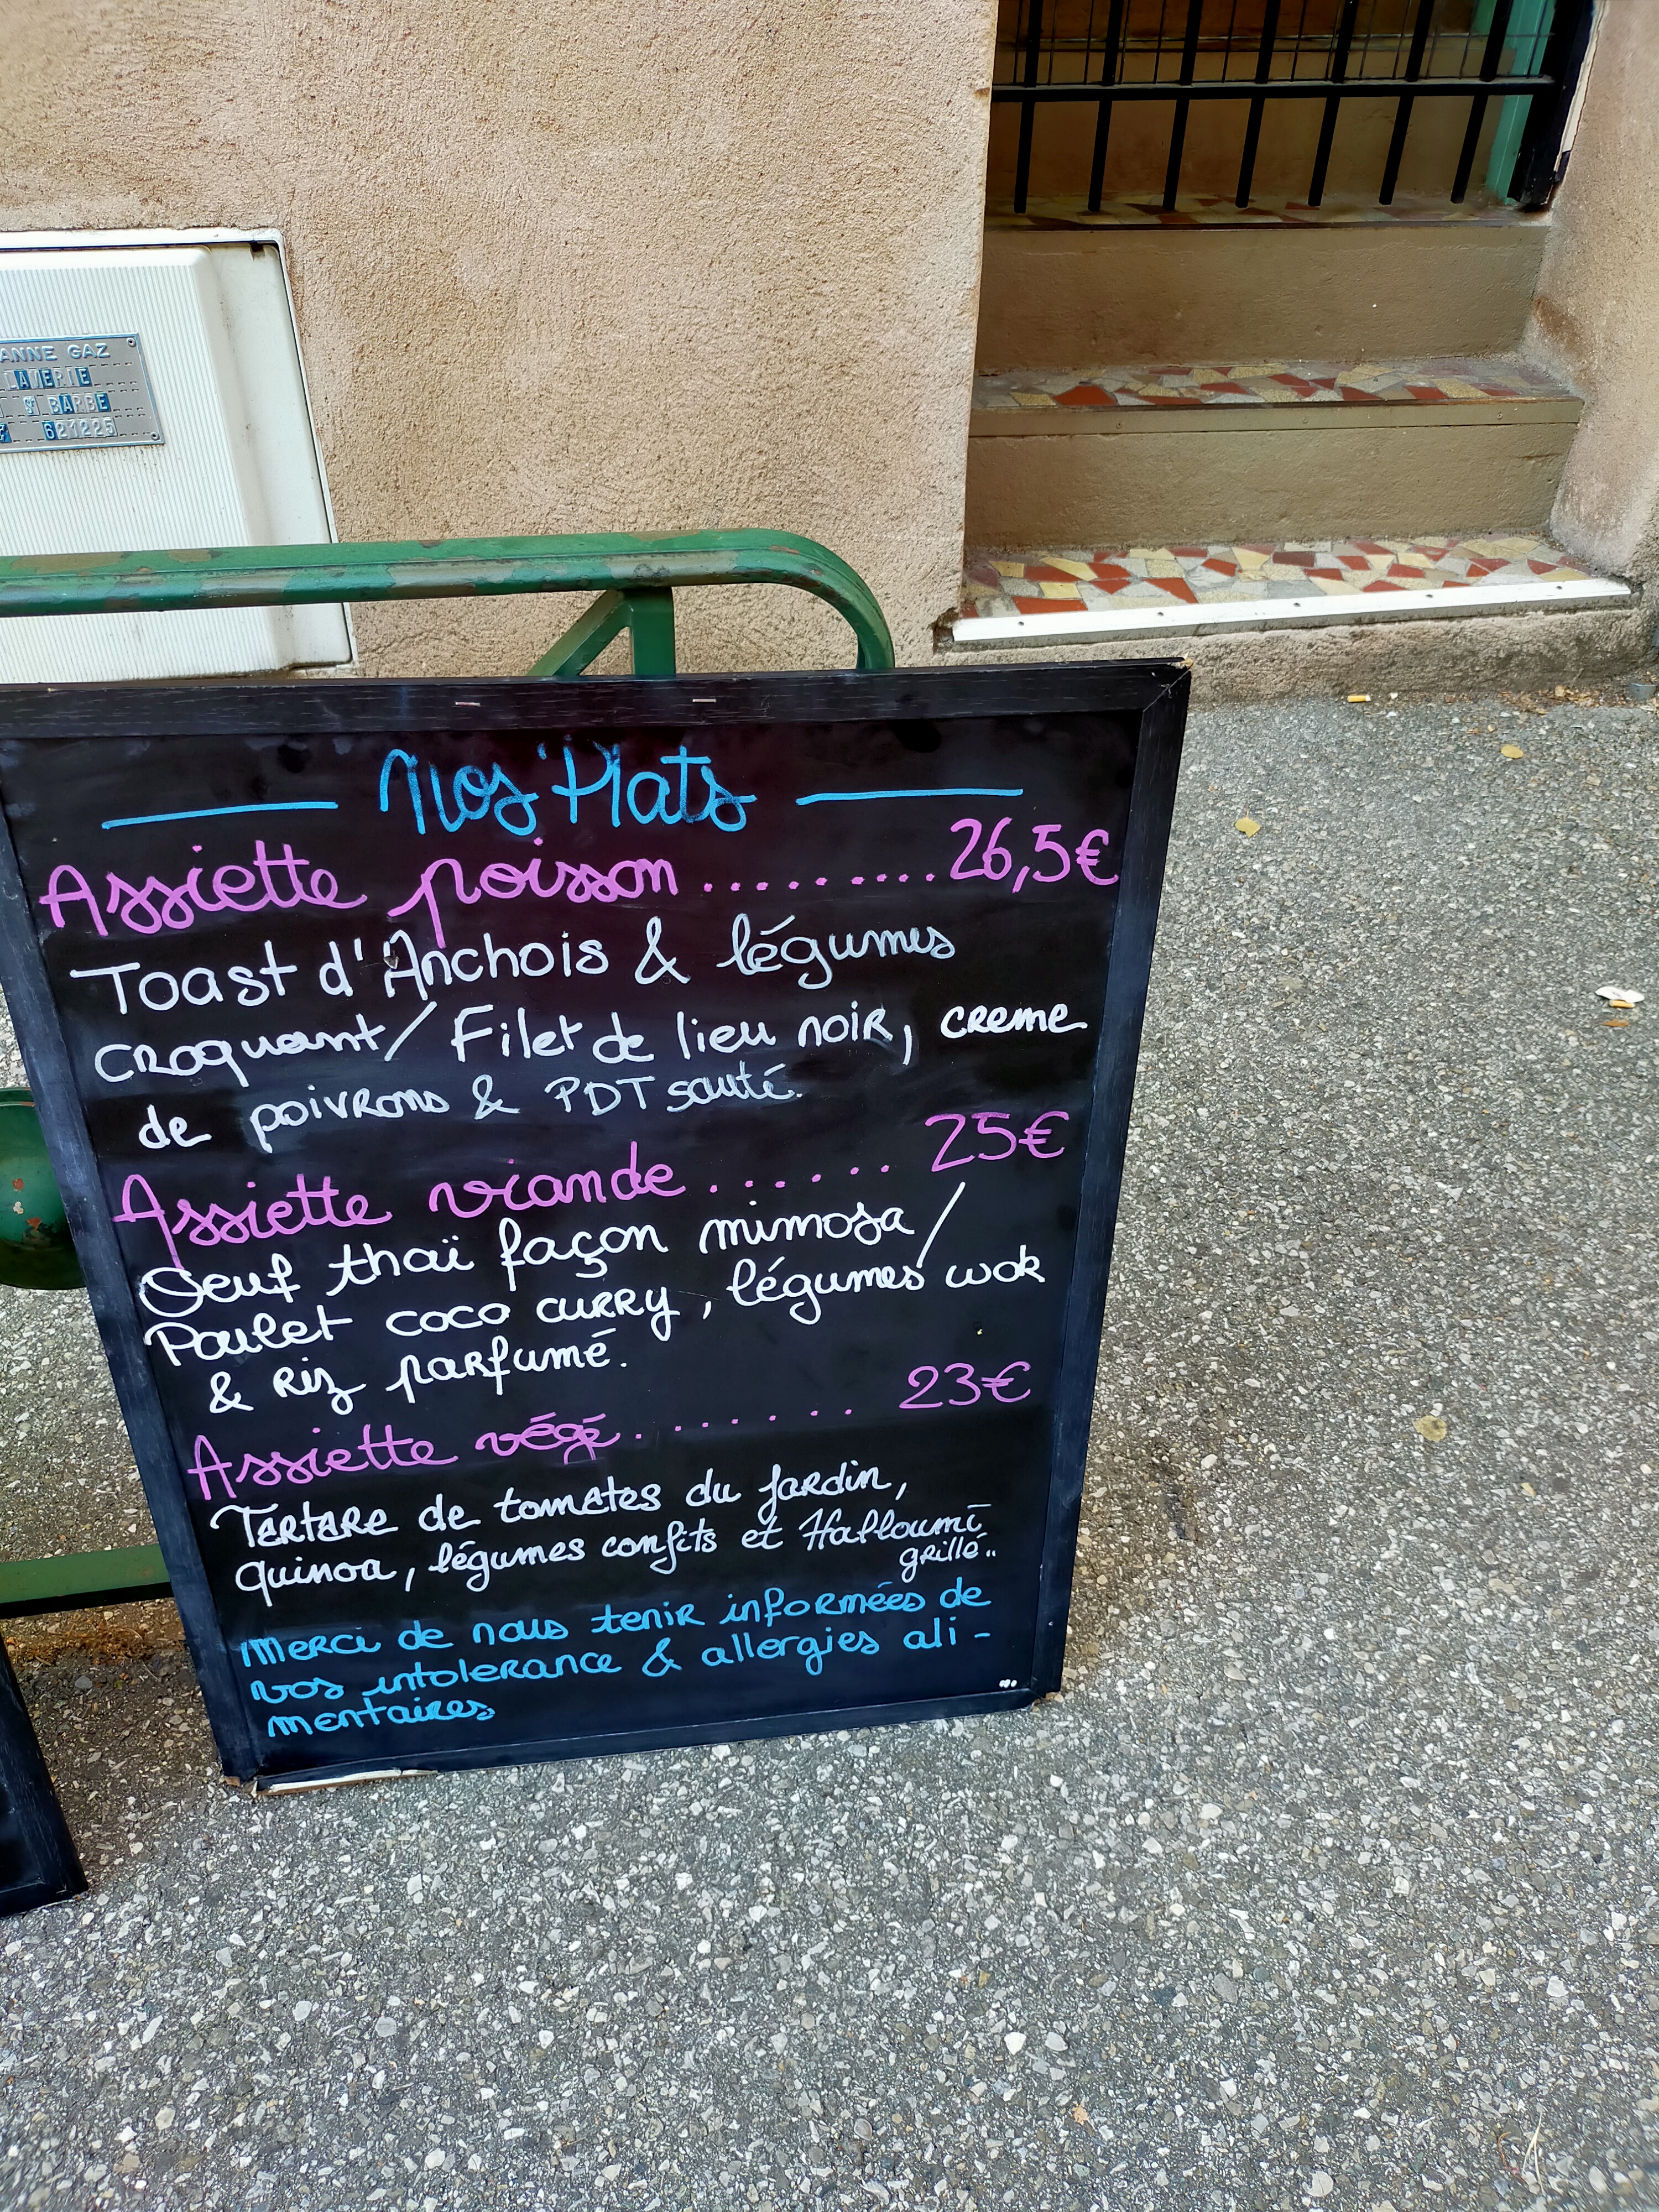 ANNE GAZ
LAVERIE
ST BARBE
621225
Nos Plats
Assiette poisson ......... 26,5€
Toast d'Anchois & légumes
croquant / Filet de lieu noir, creme
de poivrons & PDT sauté.
Assiette viande ...... 25€
Oeuf thaï façon mimosa /
Poulet coco curry, légumes wok
& riz parfumé.
Assiette végé ....... 23€
Tartare de tomates du jardin,
quinoa, légumes confits et Halloumi
grillé..
Merci de nous tenir informées de
vos intolerance & allergies ali-
mentaires